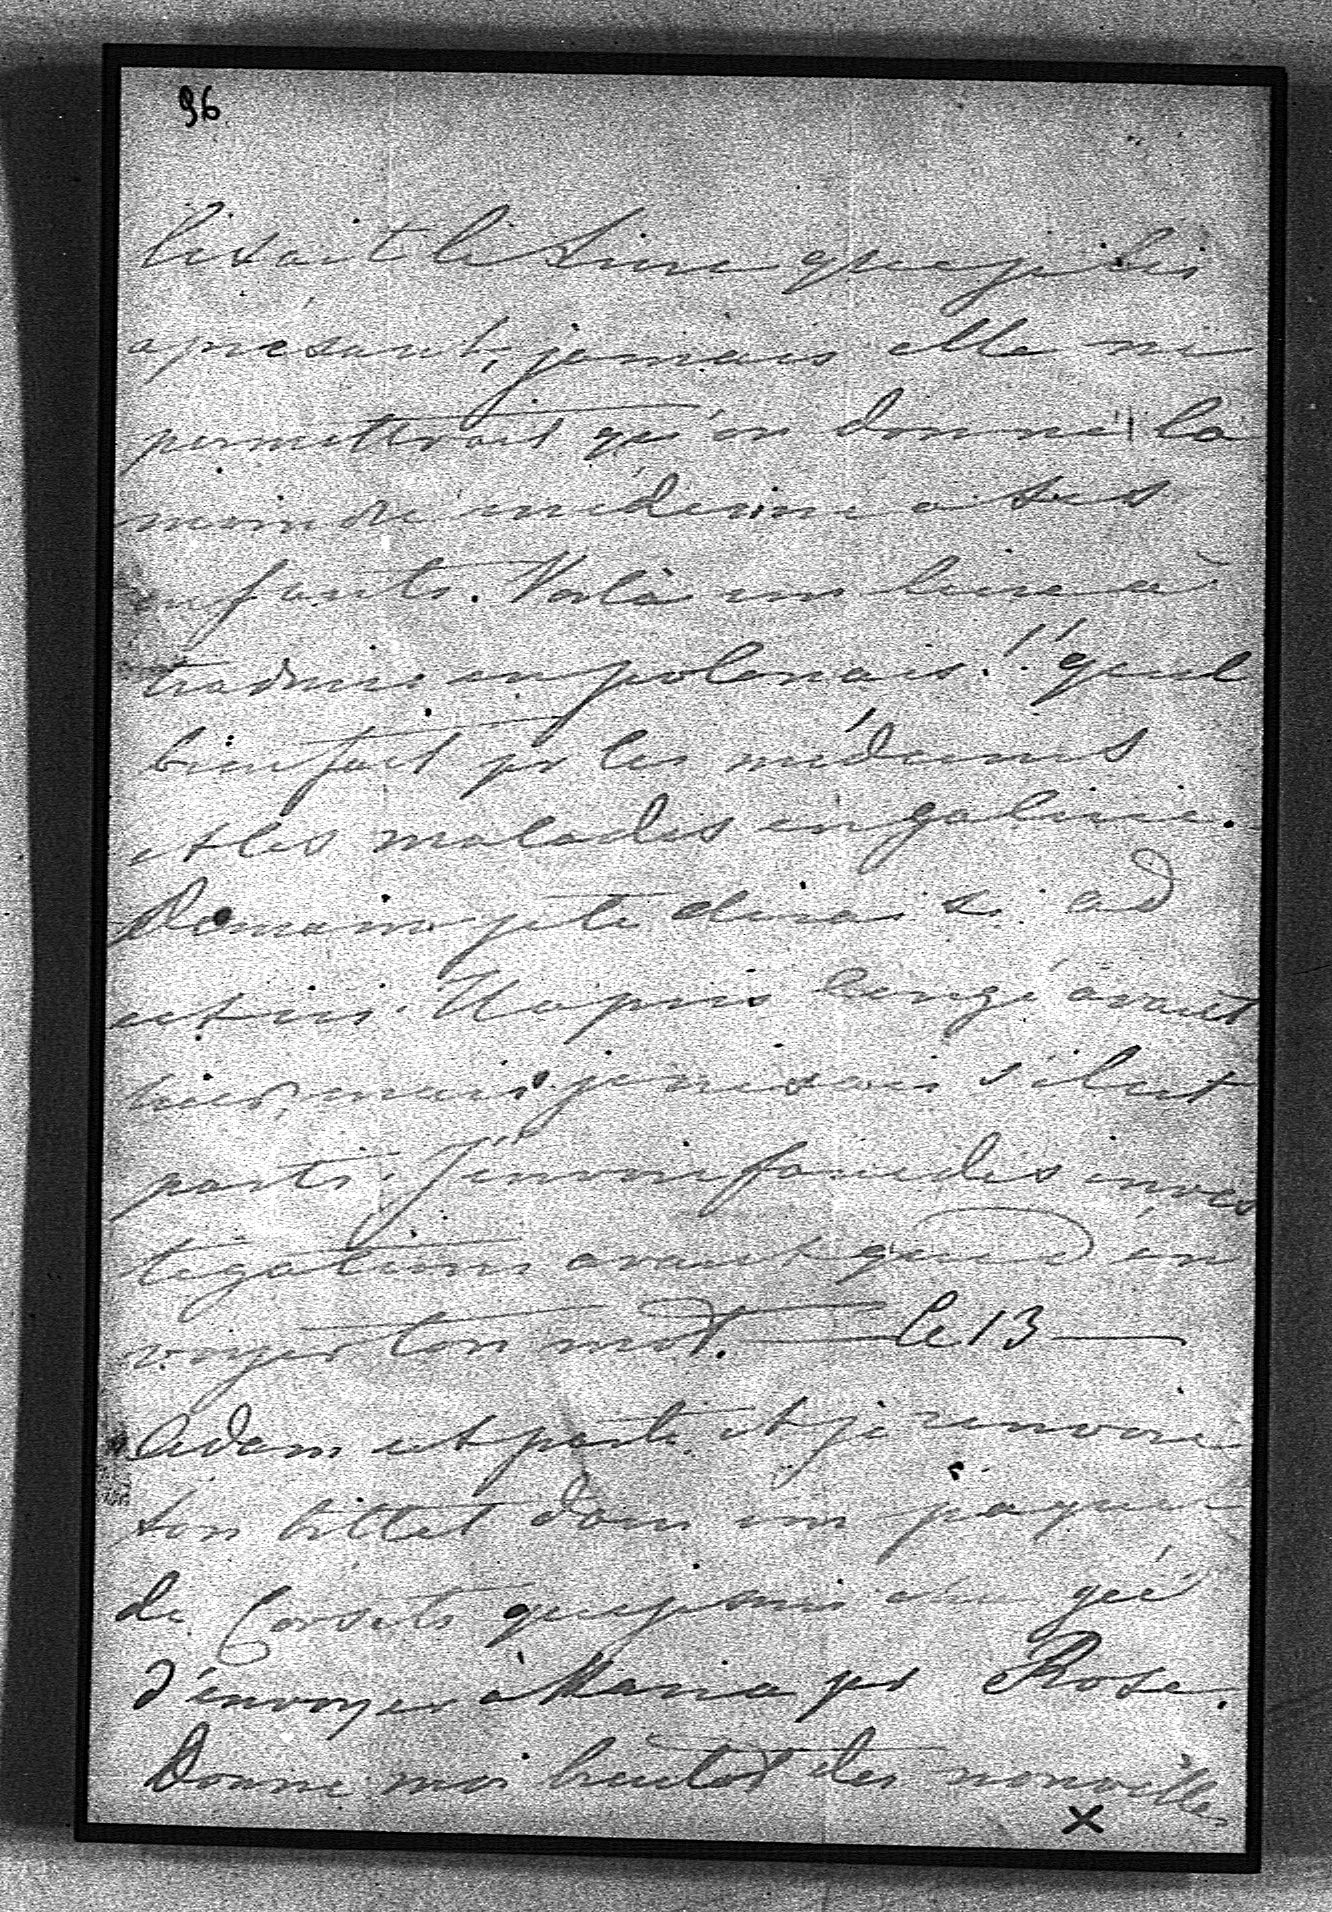 96
lisait le livre que je lis
a présent, jamais elle ne
permettrait qu'on donne la
moindre médecine a ses
enfants. Voilà un livre à
traduire en polonais! quel
bienfait pr les médecins
et les malades en galicie.
Demain je te dirai si ad
est ici. Il a pris congé avant
hier, mais je ne sais s'il est
parti. J'envoie faire des inves
tigations avant que d'en
voyer ton mot. — le 13 —
Adam est parti et je renvoie
ton billet dans un paquet
de Corsets que je suis
d'envoyer à Maria pr Rose.
Donne moi bientot des nouvelles
x